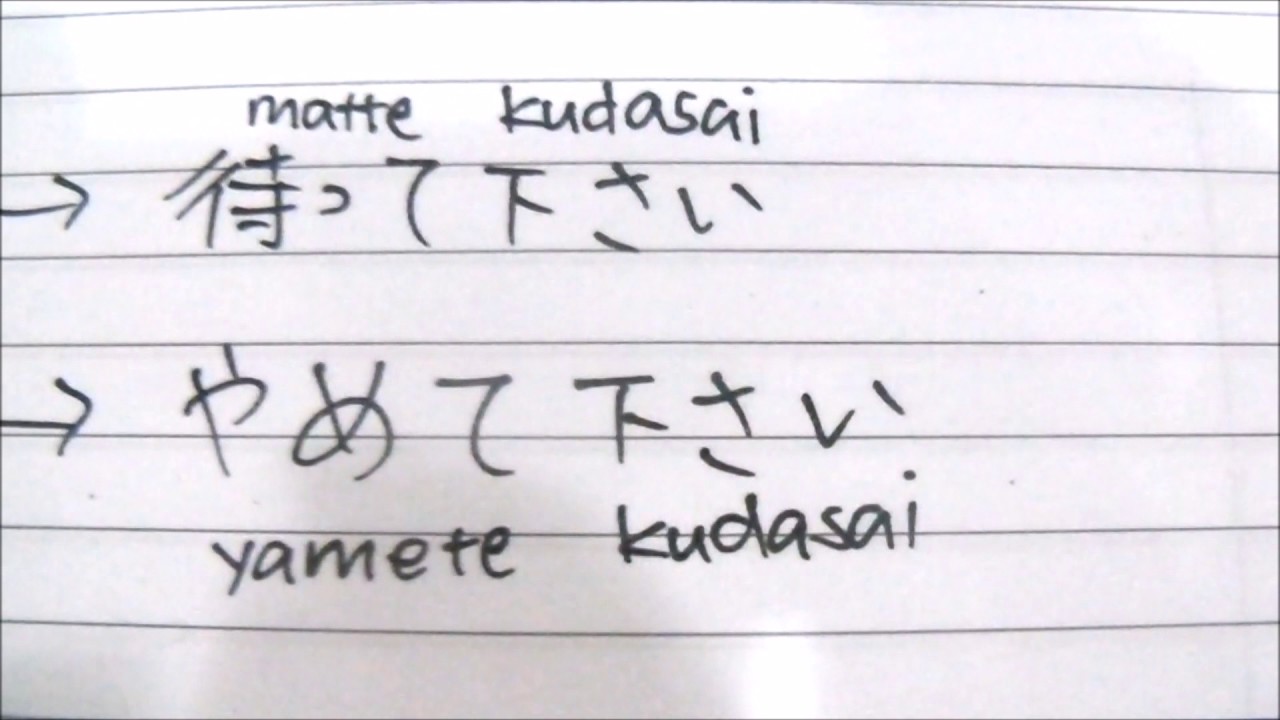 matte kudasai
→ 待って下さい
→ やめて下さい
yamete kudasai